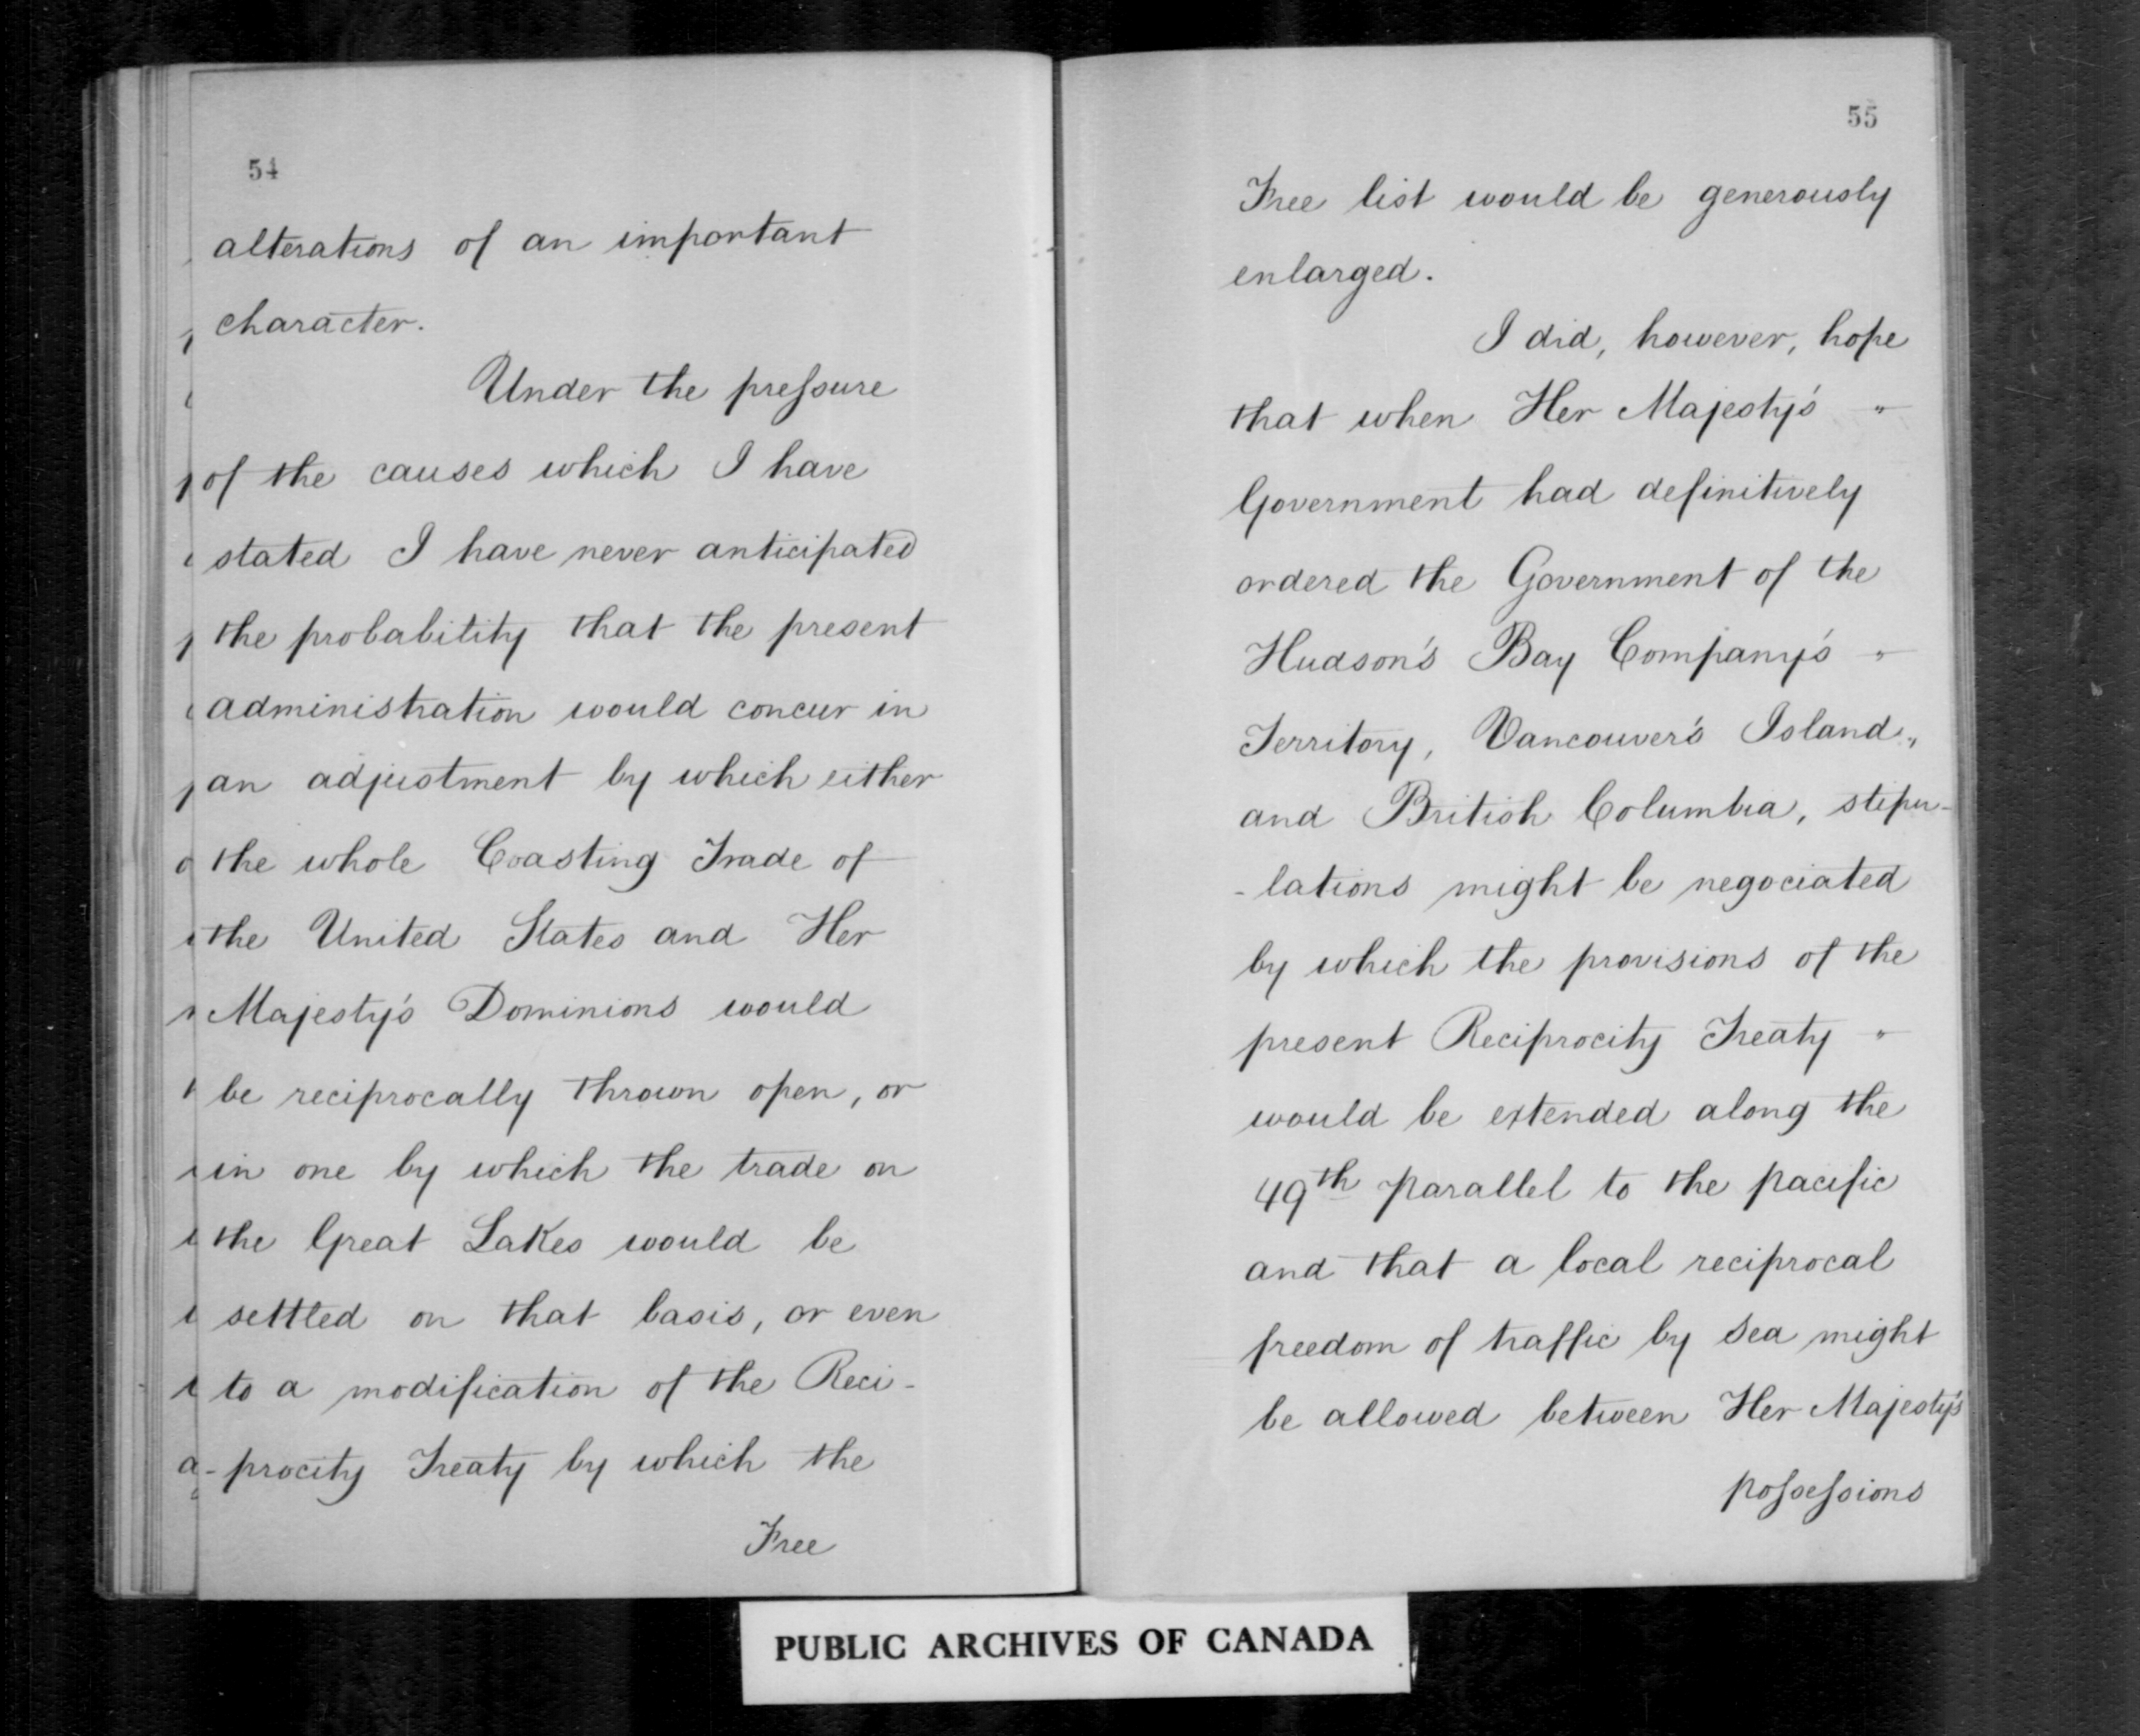 54
alterations of an important
character.
Under the pressure
of the causes which I have
stated I have never anticipated
the probability that the present
administration would concur in
an adjustment by which either
the whole Coasting Trade of
the United States and Her
Majesty's Dominions would
be reciprocally thrown open, or
in one by which the trade on
the Great Lakes would be
settled on that basis, or even
to a modification of the Reci-
-procity Treaty by which the
Free
55
Free list would be generously
enlarged.
I did, however, hope
that when Her Majesty's "
Government had definitively
ordered the Government of the
Hudson's Bay Company's "
Territory, Vancouver's Island "
and British Columbia, stipu-
-lations might be negociated
by which the provisions of the
present Reciprocity Treaty "
would be extended along the
49th parallel to the pacific
and that a local reciprocal
freedom of traffic by sea might
be allowed between Her Majesty's
possessions
PUBLIC ARCHIVES OF CANADA